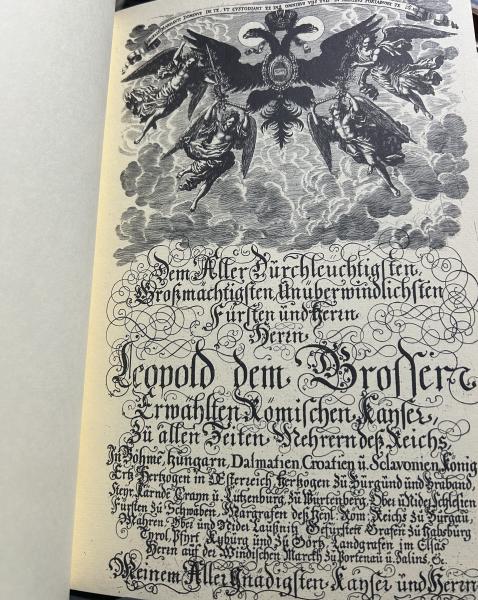 MANDAVIT DOMINUS DE TE, UT CUSTODIANT TE IN OMNIBUS VIIS TUIS IN MANIBUS PORTABUNT TE
Dem Aller Dürchleuchtigsten,
Großmächtigsten Unüberwindlichsten
Fürsten und Herrn
Herrn
Leopold dem Grossen
Erwählten Römischen Kayser,
Zu allen Zeiten Mehrern deß Reichs,
In Böhme, Hungarn, Dalmatien, Croatien ü. Sclavonien, König
Ertz Hertzogen in Oesterreich, Hertzogen zu Burgund und Braband,
Steyr, Kärnde, Crayn ü. Lützenburg, zu Würtenberg, Ober ü Nider Schlesien
Fürsten zu Schwaben, Margrafen deß Heyl. Röm. Reichs zu Burgau,
Mähren, Ober und Nider Laüßnitz, Gefürsteft Grafen zu Habsburg
Tyrol, Pfyrt, Kyburg und zu Görtz, Landgrafen im Elsas
Herrn auf der Windischen March, zu Portenau ü. Salins. &c.
Meinem Aller Gnädigsten Kayser und Herrn